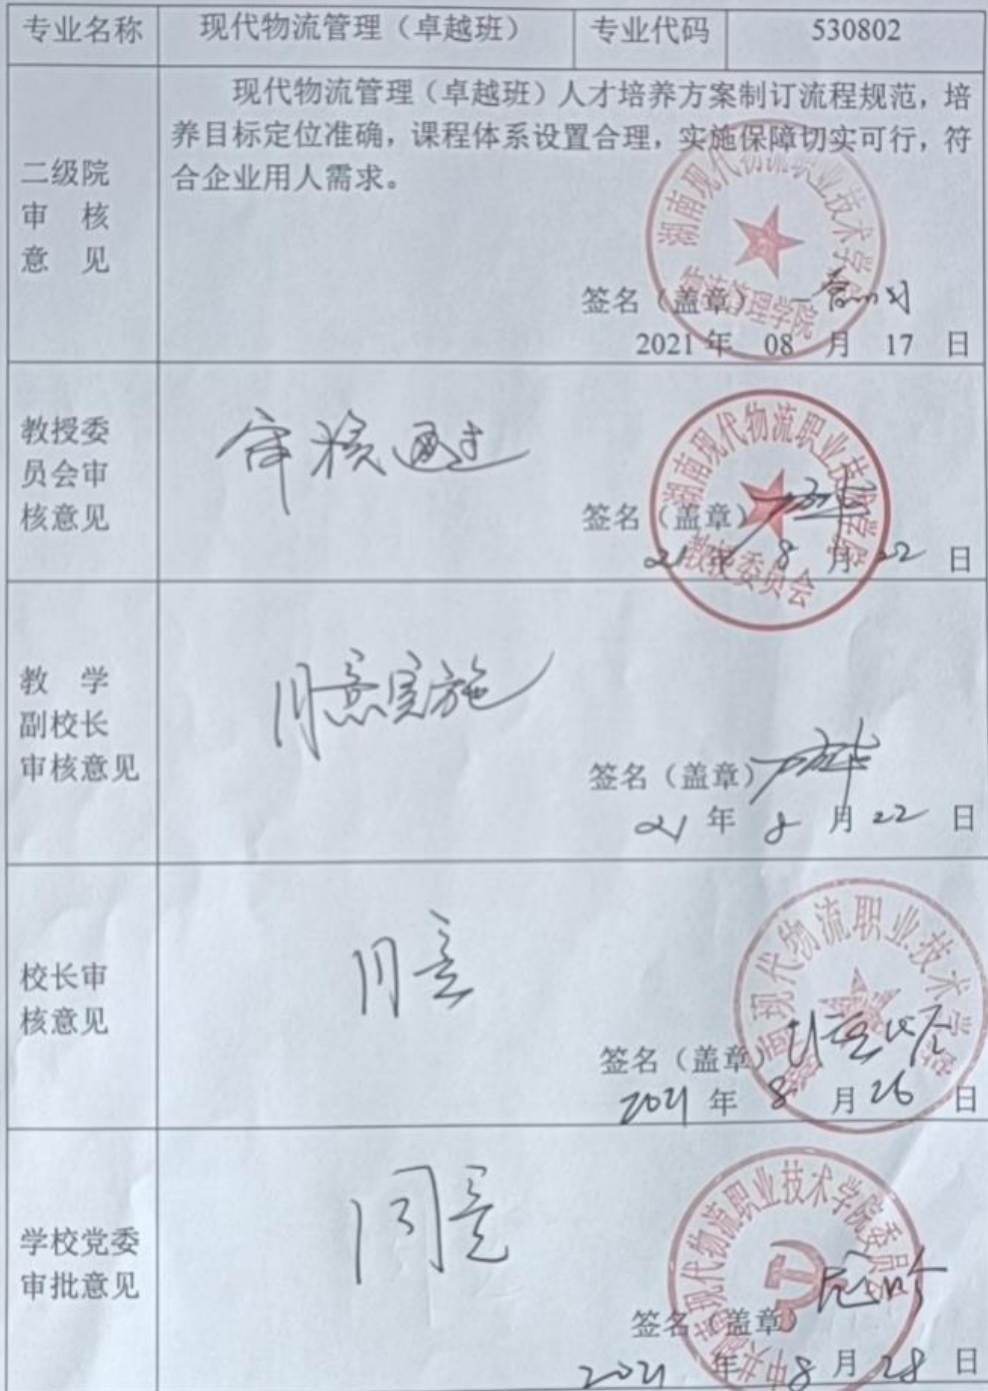 专业名称 现代物流管理（卓越班） 专业代码 530802
现代物流管理（卓越班）人才培养方案制订流程规范，培
养目标定位准确，课程体系设置合理，实施保障切实可行，符
合企业用人需求。
二级院
审 核
意 见
湖南现代物流职业技术学院
物流管理学院
签名（盖章）
2021 年 08 月 17 日
教授委
员会审
核意见
审核通过
湖南现代物流职业技术学院
教授委员会
签名（盖章）
21 年 8 月 22 日
教 学
副校长
审核意见
同意实施
签名（盖章）
21 年 8 月 22 日
校长审
核意见
同意
湖南现代物流职业技术学院
签名（盖章）
2021 年 8 月 26 日
学校党委
审批意见
同意
中共湖南现代物流职业技术学院委员会
签名（盖章）
2021 年 8 月 28 日